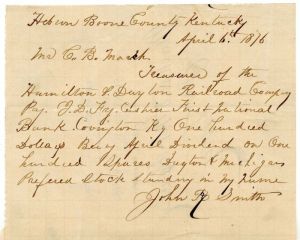 Hebron Boone County Kentucky
April 6th 1876
Mr C. B. Marsh
Treasurer of the
Hamilton & Dayton Railroad Company
Pay J. D. Fry Cashier First National
Bank Covington Ky One hundred
Dollars Being April Dividend on One
hundred Shares Dayton & Michigan
Prefered Stock standing in my name
John R Smith